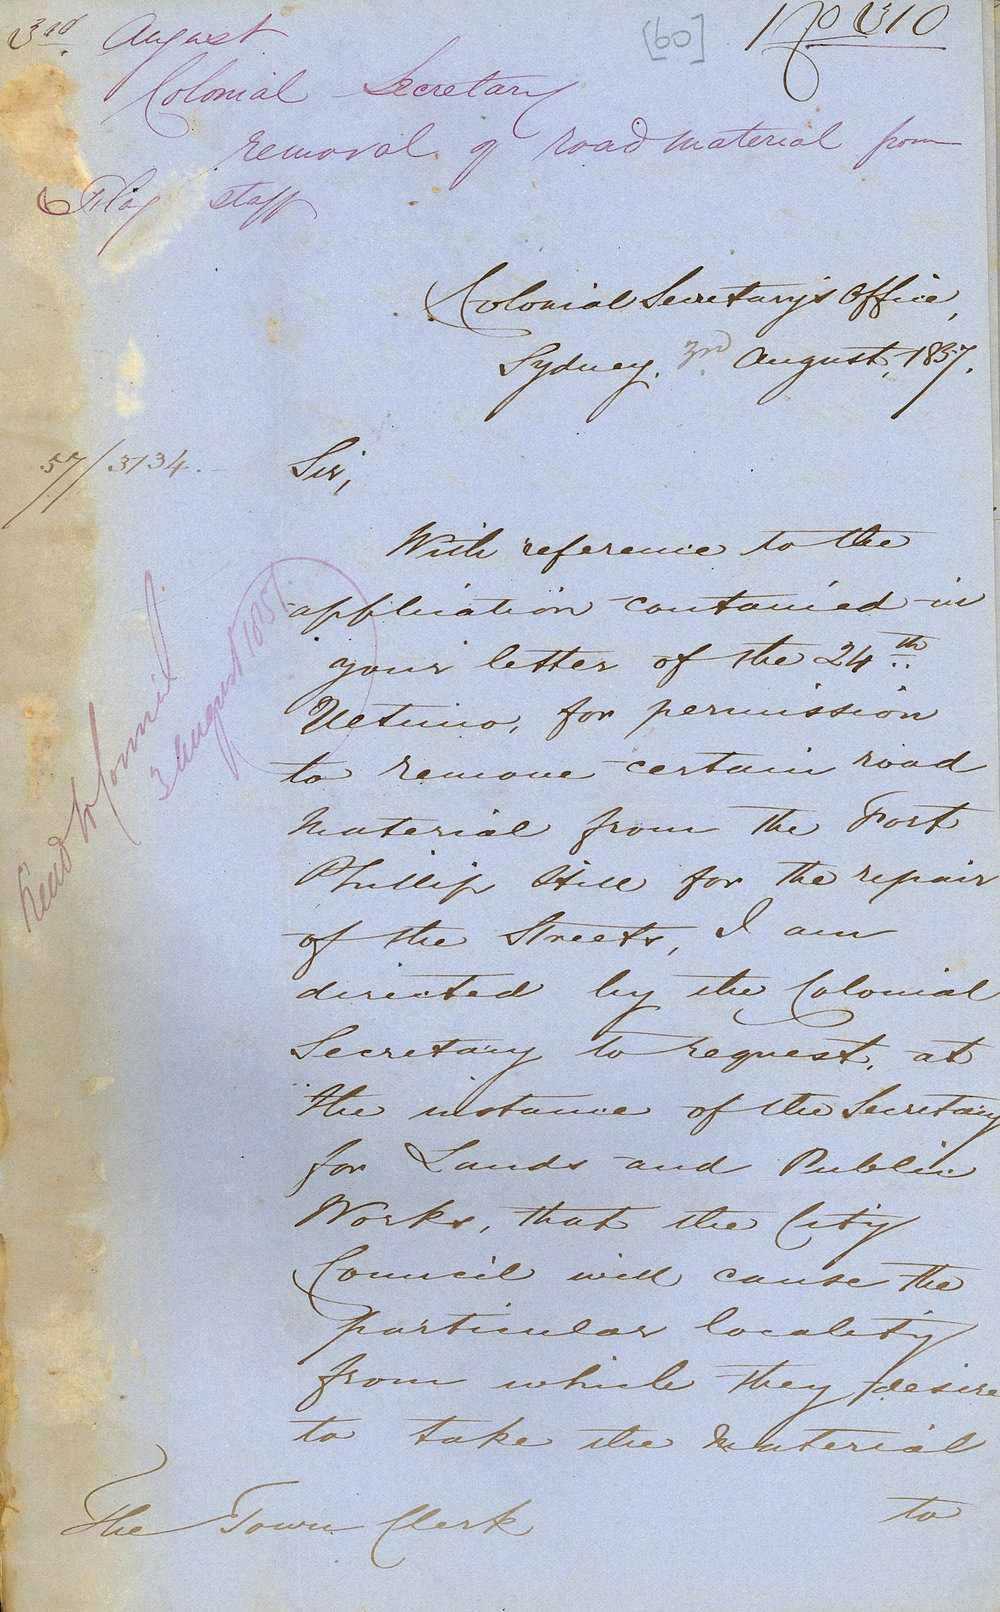 3rd August
[60]
No 310
Colonial Secretary
removal of road material from
Flag staff
Colonial Secretary's Office,
Sydney. 3rd August, 1857.
57/3134.
Sir,
With reference to the
application contained in
your letter of the 24th
Ultimo, for permission
to remove certain road
material from the Fort
Phillip Hill for the repair
of the Streets, I am
directed by the Colonial
Secretary to request, at
the instance of the Secretary
for Lands and Public
Works, that the City
Council will cause the
particular locality
from which they desire
to take the material
to
The Town Clerk
Read to Council
3 August 1857